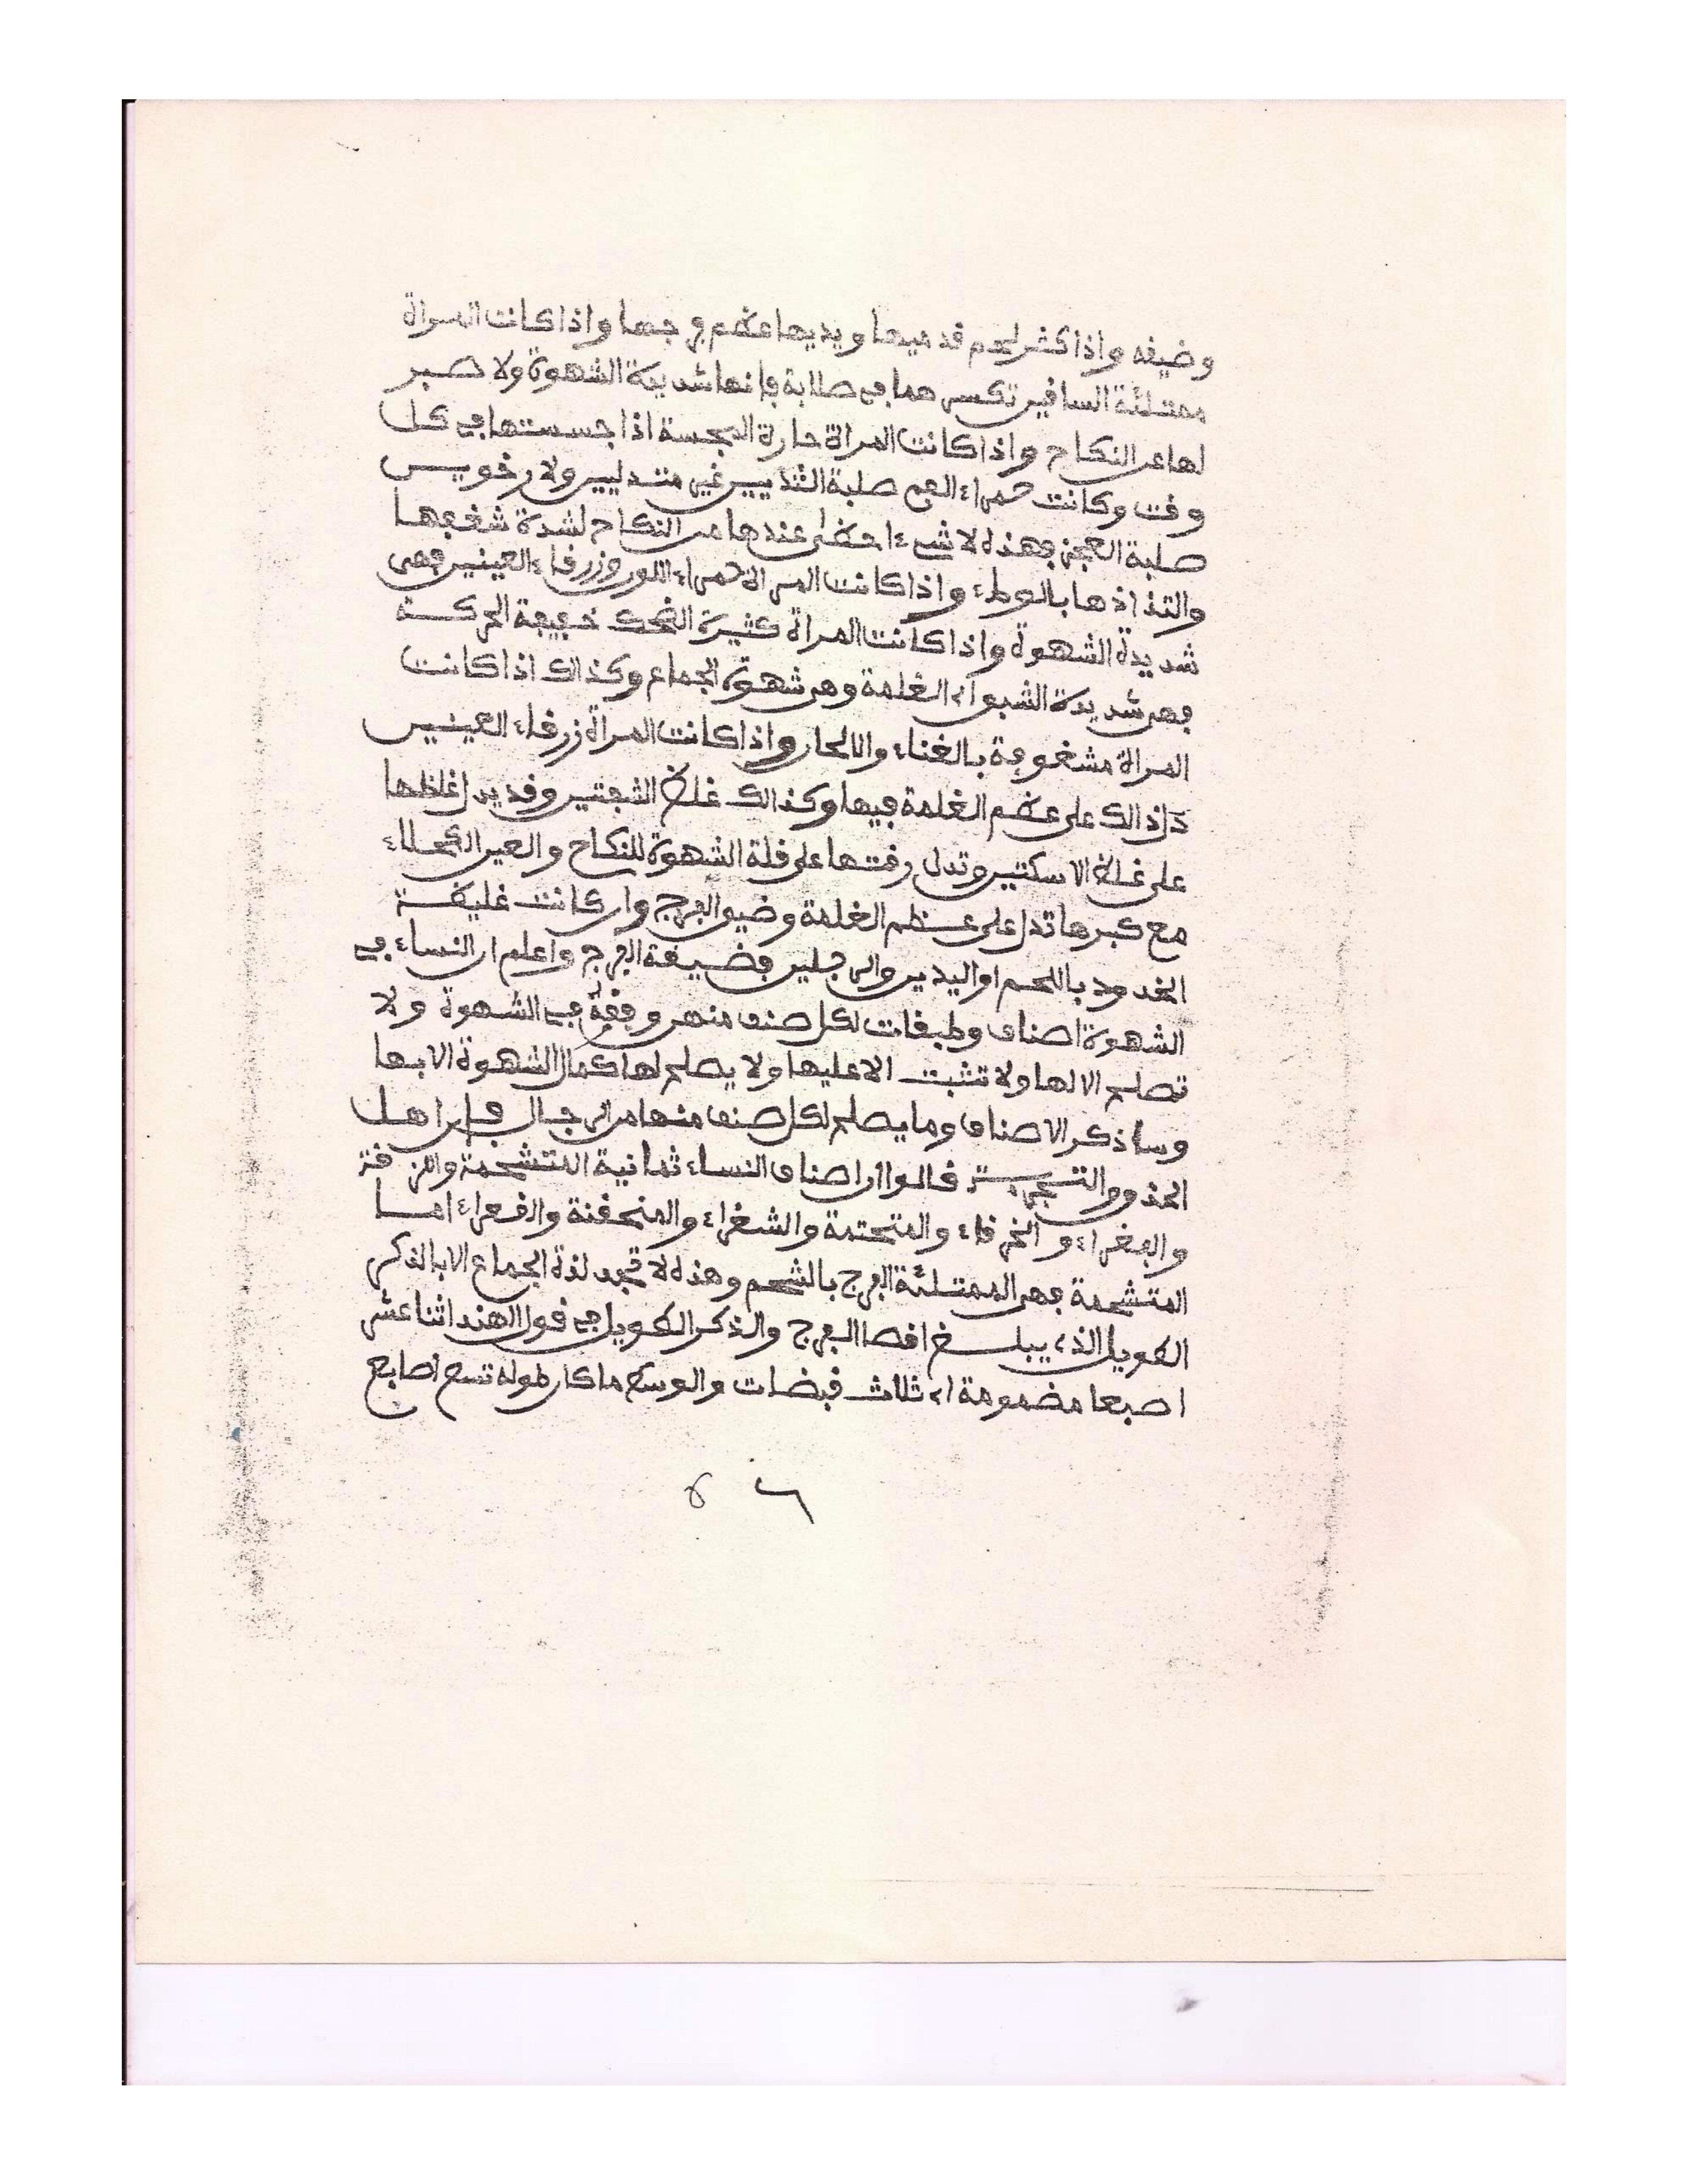 وضيفه واذا كثر لحم قدميها ويديها عظم فرجها واذا كانت المراة
ممتلئة السافين تكسرهما في صلابة فانها شديدة الشهوة ولا صبر
لها عن النكاح واذا كانت المراة حارة المجسة اذا جسستها في كل
وقت وكانت حمراء الفم صلبة الثديين غير متدليين ولا رخوين
صلبة العجز فهذه لا شيء احظى عندها من النكاح لشدة شغفها
والتذاذها بالوطء واذا كانت المراة حمراء اللون وزرقاء العينين فهي
شديدة الشهوة واذا كانت المراة كثيرة الضحك خفيفة الحركة
فهي شديدة الشبق اي الغلمة وهي شهوة الجماع وكذالك اذا كانت
المراة مشغوفة بالغناء والالحان واذا كانت المراة زرقاء العينين
دل ذالك على عظم الغلمة فيها وكذالك غلظ الشفتين وقد يدل غلظها
على غلظ الاسكتين وتدل رقتها على قلة الشهوة للنكاح والعين الكحلاء
مع كبرها تدل على عظم الغلمة وضيق الفرج وان كانت غليظة
الخدود باللحم او اليدين والرجلين فضيقة الفرج واعلم ان النساء في
الشهوة اصناف وطبقات لكل صنف منهن وقفة في الشهوة ولا
تصلح الا لها ولا تثبت الا عليها ولا يصلح لها كمال الشهوة الا بها
وساذكر الاصناف وما يصلح لكل صنف منها من الرجال فان اهل
الحذق والتجربة قالوا ان اصناف النساء ثمانية المتشحمة والنزقة
والفغراء و الخرقاء والمتحتمة والشغراء والمنحفنة والقعراء اما
المتشحمة فهي الممتلئة الفرج بالشحم وهذه لا تجد لذة الجماع الا بالذكر
الطويل الذي يبلغ اقصا الفرج والذكر الطويل في قول الهند اثنا عشر
اصبعا مضمومة اي ثلاث قبضات والوسط ما كان طوله تسع اصابع